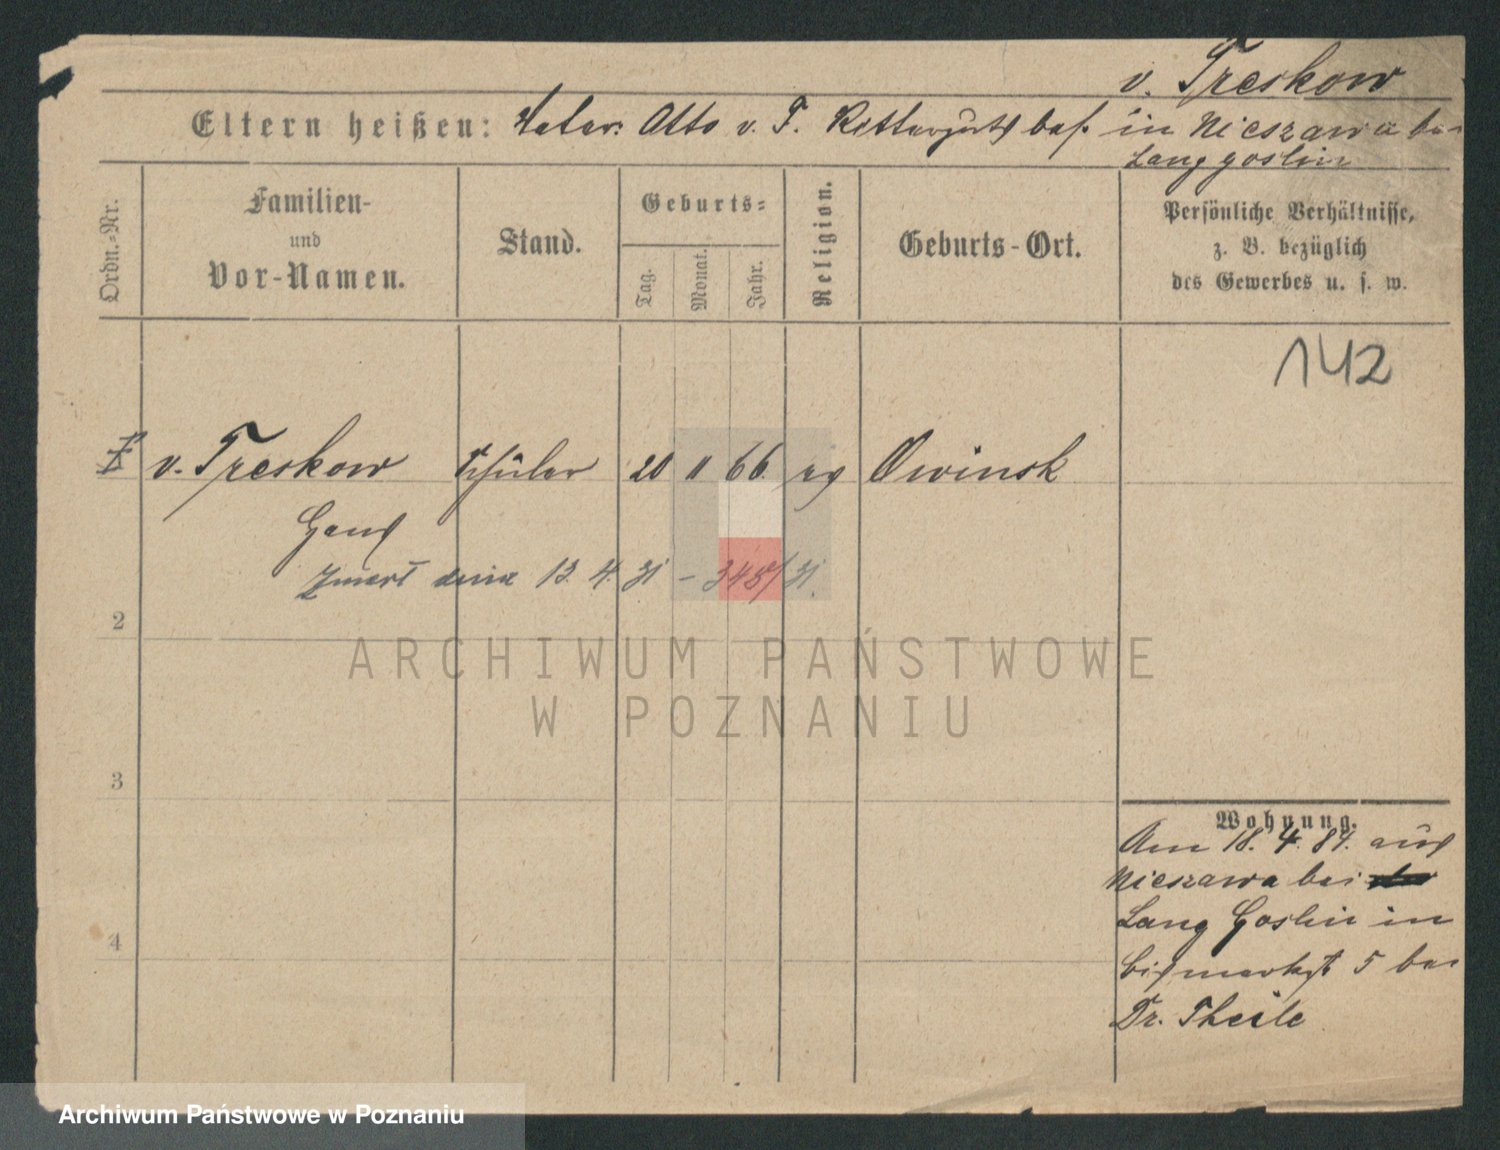 v. Treskow
Eltern heißen: Vater: Otto v. T. Rittergutsbes. in Nieszawa bei
Lang goslin
Ordn.=Nr.
Familien-
und
Vor-Namen.
Stand.
Geburts=
Tag.
Monat.
Jahr.
Religion.
Geburts-Ort.
Persönliche Verhältnisse,
z. B. bezüglich
des Gewerbes u. s. w.
142
v. Treskow Schüler 20 11 66. ev Owinsk
Hans
Zmarł dnia 13. 4. 31 – 345/31.
2
ARCHIWUM PAŃSTWOWE
W POZNANIU
3
Wohnung.
Am 18. 4. 84. aus
Nieszawa bei
Lang Goslin in
Bismarkst 5 bei
Dr. Theile
4
Archiwum Państwowe w Poznaniu